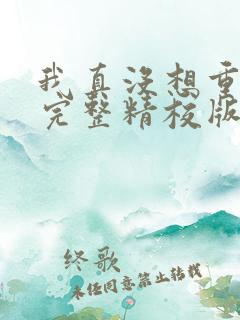 我真没想重
完整精校版
终歌
未经同意禁止转载